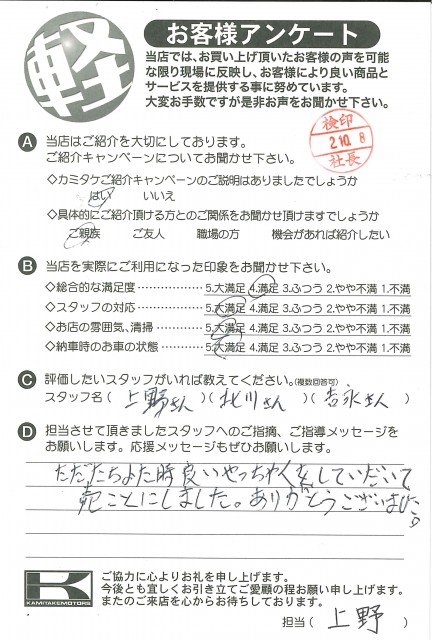 軽
お客様アンケート
当店では、お買い上げ頂いたお客様の声を可能
な限り現場に反映し、お客様により良い商品と
サービスを提供する事に努めています。
大変お手数ですが是非お声をお聞かせ下さい。
検印
2.10.8
社長
A 当店はご紹介を大切にしております。
ご紹介キャンペーンについてお聞かせ下さい。
◇カミタケご紹介キャンペーンのご説明はありましたでしょうか
はい いいえ
◇具体的にご紹介頂ける方とのご関係をお聞かせ頂けますでしょうか
ご親族 ご友人 職場の方 機会があれば紹介したい
B 当店を実際にご利用になった印象をお聞かせ下さい。
◇総合的な満足度 5.大満足 4.満足 3.ふつう 2.やや不満 1.不満
◇スタッフの対応 5.大満足 4.満足 3.ふつう 2.やや不満 1.不満
◇お店の雰囲気、清掃 5.大満足 4.満足 3.ふつう 2.やや不満 1.不満
◇納車時のお車の状態 5.大満足 4.満足 3.ふつう 2.やや不満 1.不満
C 評価したいスタッフがいれば教えてください。(複数回答可)
スタッフ名 ( 上野さん ) ( 北川さん ) ( 吉永さん )
D 担当させて頂きましたスタッフへのご指摘、ご指導メッセージを
お願いします。応援メッセージもぜひお願いします。
時良いやっちゃくをしていだいて
売ことにしました。ありがとうございました。
K
KAMITAKEMOTORS
ご協力に心よりお礼を申し上げます。
今後とも宜しくお引き立てご愛顧の程お願い申し上げます。
またのご来店を心からお待ちしております。
担当 ( 上野 )